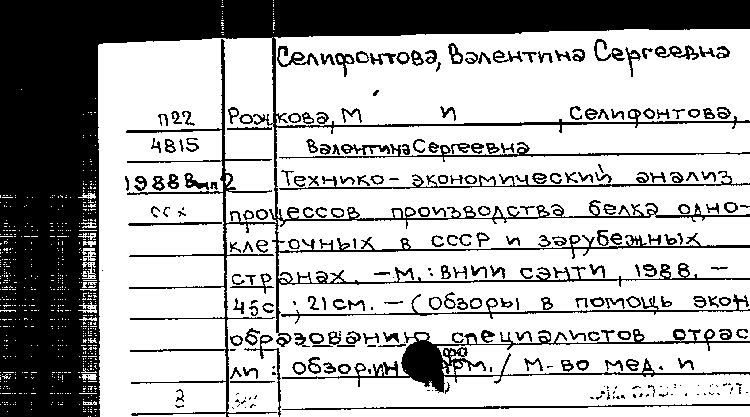 Селифонтова, Валентина Сергеевна
п22 Рожкова, М И , Селифонтова,
4815 Валентина Сергеевна
1988 Вып 2 Технико-экономический анализ
ссх процессов производства белка одно-
клеточных в СССР и зарубежных
странах. — М. : ВНИИ СЭНТИ, 1988. —
45с. ; 21 см. — (Обзоры в помощь экон
образованию специалистов отрас
ли : обзор. информ. / М-во мед. и
3